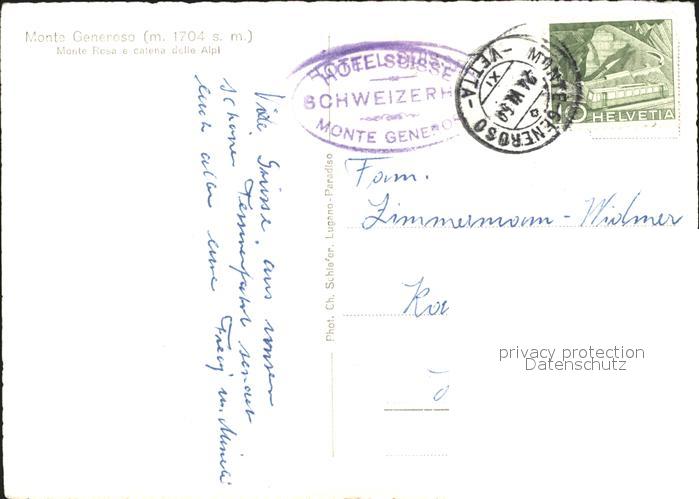 Monte Generoso (m. 1704 s. m.)
Monte Rosa e catena delle Alpi
HOTEL SUISSE
SCHWEIZERH
MONTE GENEROSO
MONTE GENEROSO
-VETTA-
XI
HELVETIA
Phot. Ch. Schiefer, Lugano-Paradiso
Viele Grüsse aus unserer
schönen Tessinerfahrt sendet
euch allen eure
Fam.
Zimmermann-Widmer
privacy protection
Datenschutz